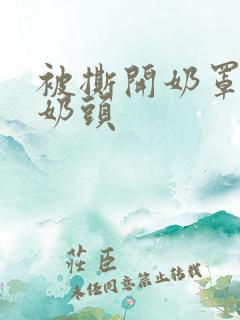 被撕開奶罩
奶頭
莊臣
未经同意禁止转载